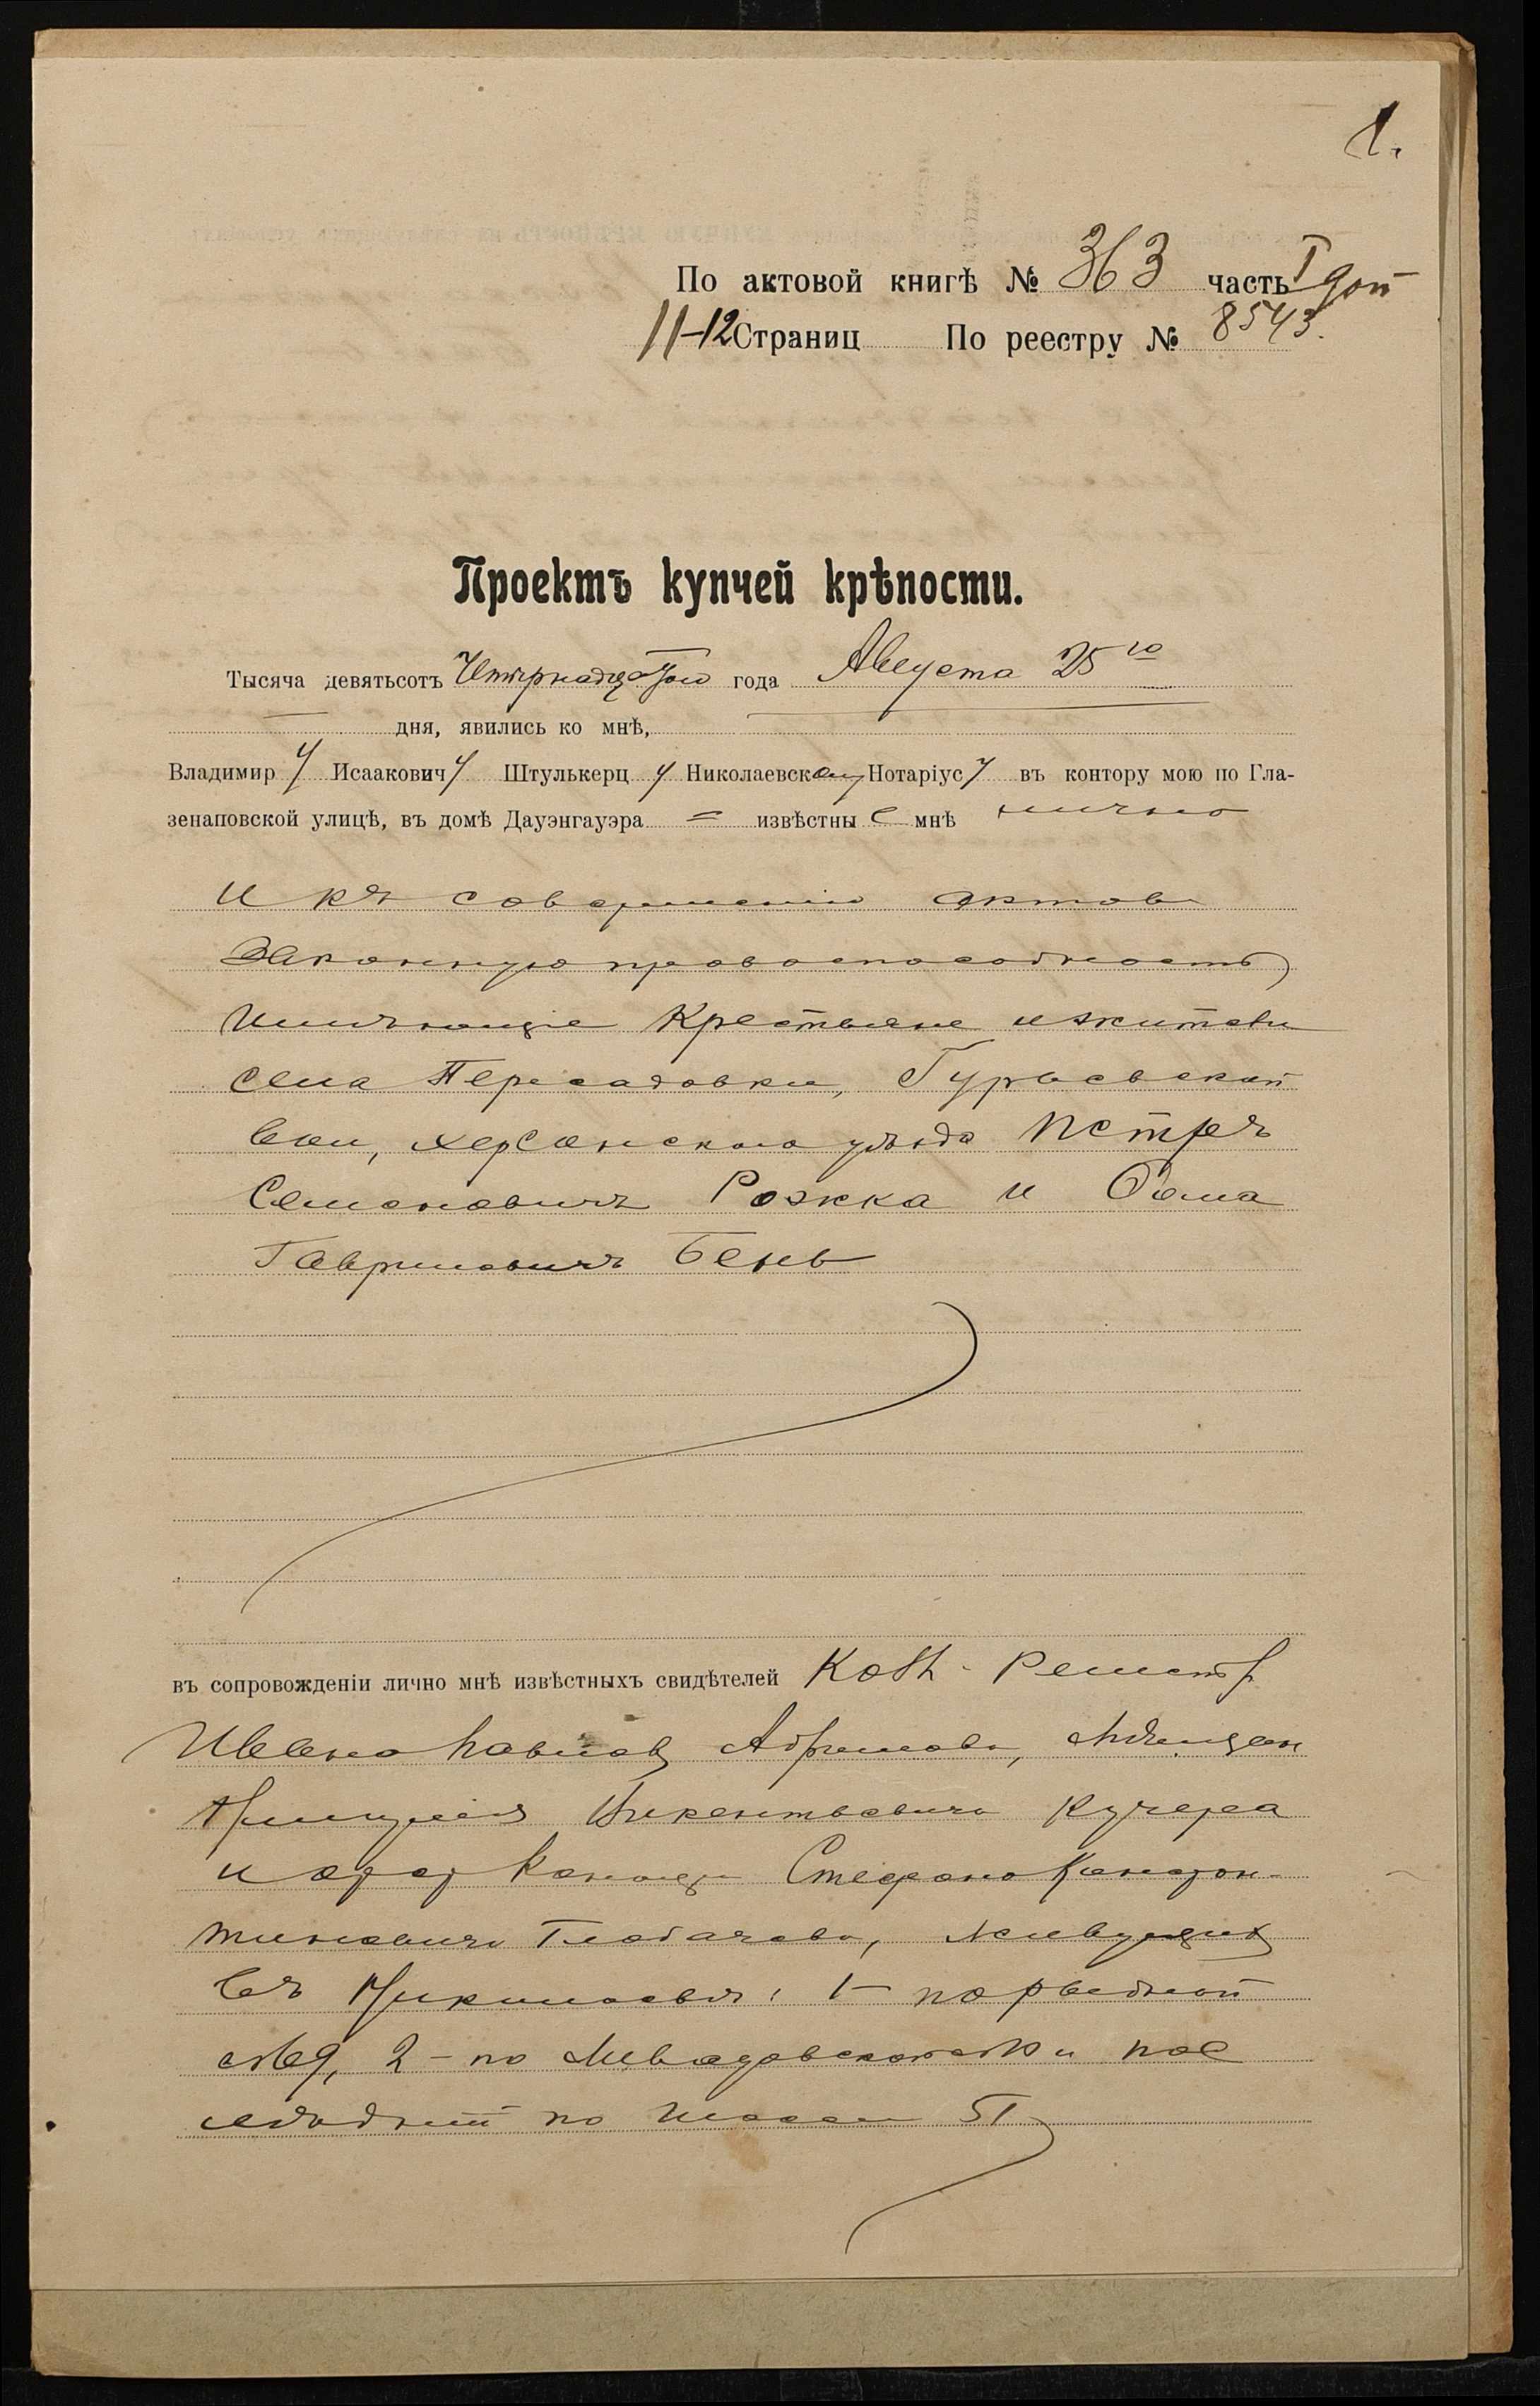 1.
По актовой книгѣ № 363 часть I доп
11-12 Страниц По реестру № 8543.
Проектъ купчей крѣпости.
Тысяча девятьсотъ Четырнадцатого года Августа 25го
дня, явились ко мнѣ,
Владимиру Исааковичу Штулькерцу Николаевскому Нотаріусу въ контору мою по Гла-
зенаповской улицѣ, въ домѣ Дауэнгауэра = извѣстные мнѣ лично
и къ совершенію актовъ
законную правоспособность
имѣющіе Крестьяне и жители
села Пересадовки, Гурьевской
вол, Херсонского уѣзда Петръ
Семеновичъ Рожка и Фома
Гавриловичъ Бень
въ сопровожденіи лично мнѣ извѣстныхъ свидѣтелей Кол. Регистр
Ивана Павлов Абрамова, Мѣщан
Викентьевича Кучера
и Стефана Констан-
тиновича Глобачева, живущих
въ Николаевѣ: 1-
2 - по и пос
лѣдній по Шоссе